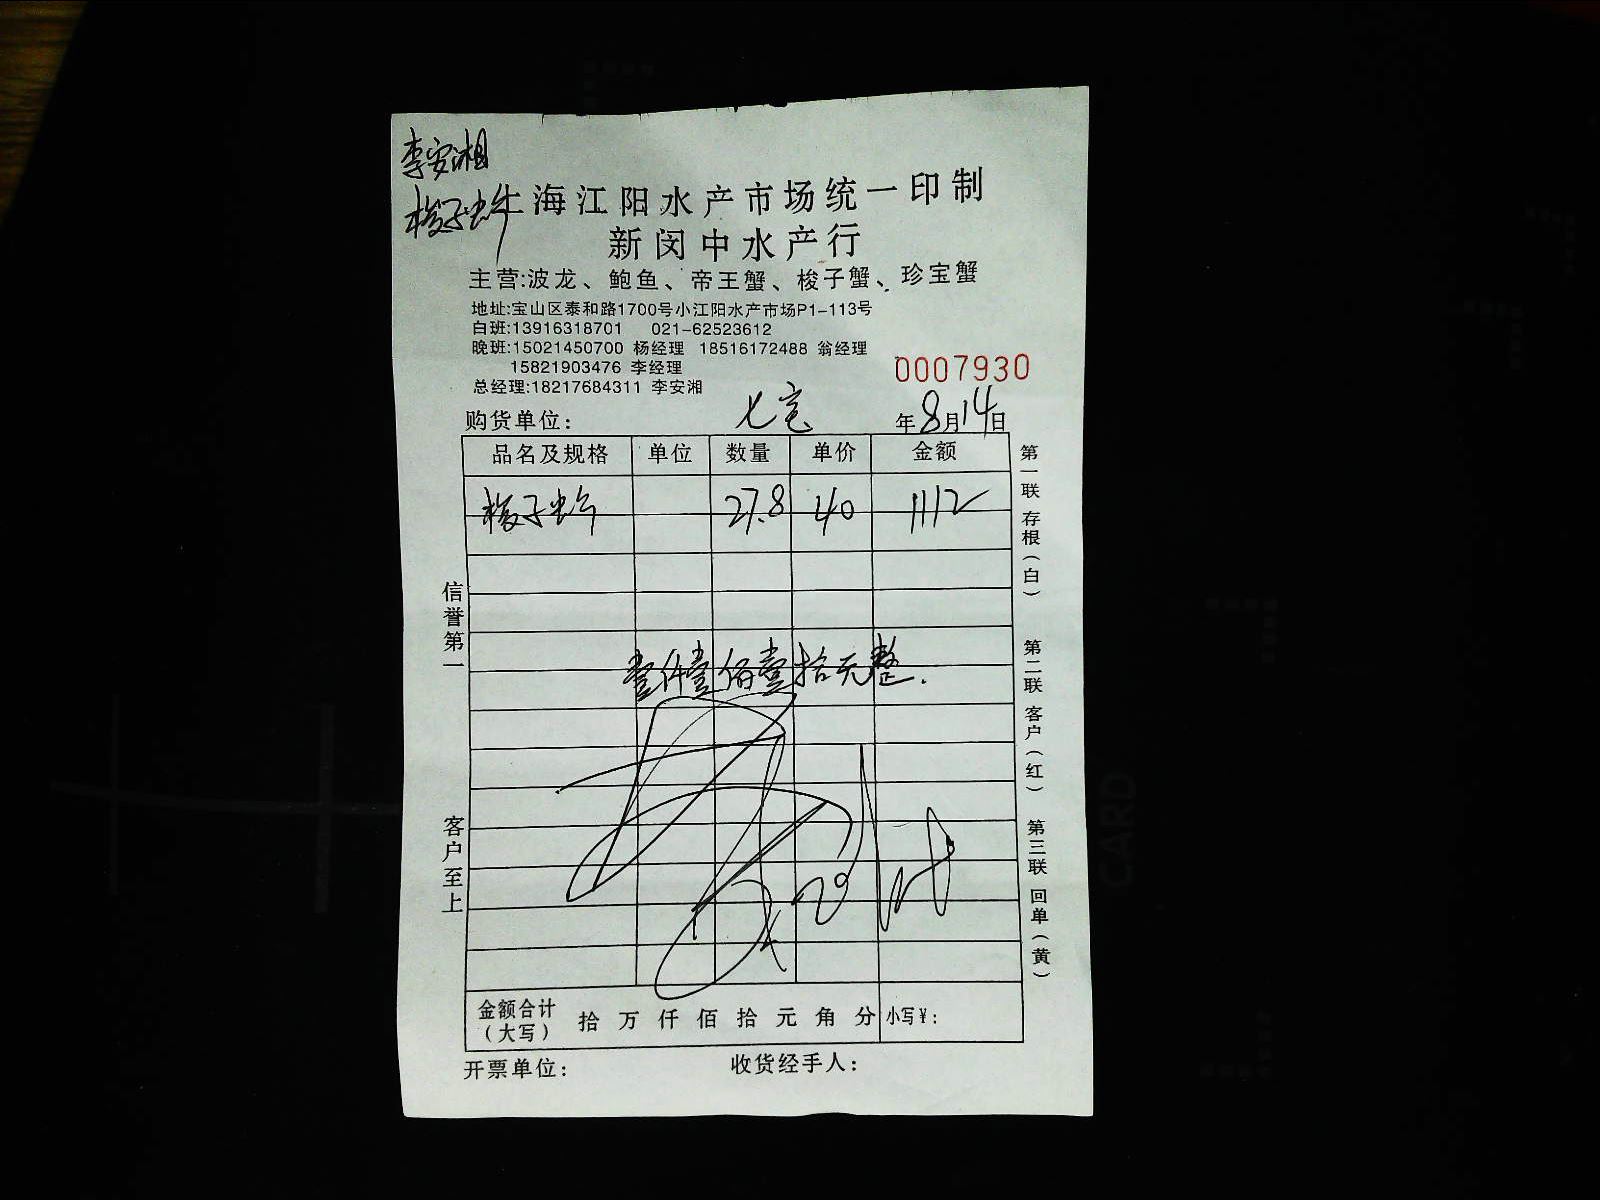 李安湘
梭子
海江阳水产市场统一印制
新闵中水产行
主营:波龙、鲍鱼、帝王蟹、梭子蟹、珍宝蟹
地址:宝山区泰和路1700号小江阳水产市场P1-113号
白班:13916318701 021-62523612
晚班:15021450700 杨经理 18516172488 翁经理
15821903476 李经理
0007930
总经理:18217684311 李安湘
购货单位: 七宝 年8月14日
品名及规格 单位 数量 单价 金额
梭子 27.8 40 1112
壹仟壹佰壹拾元整.
金额合计
(大写) 拾 万 仟 佰 拾 元 角 分 小写¥:
开票单位: 收货经手人:
信誉第一
客户至上
第一联 存根(白)
第二联 客户(红)
第三联 回单(黄)
CARD